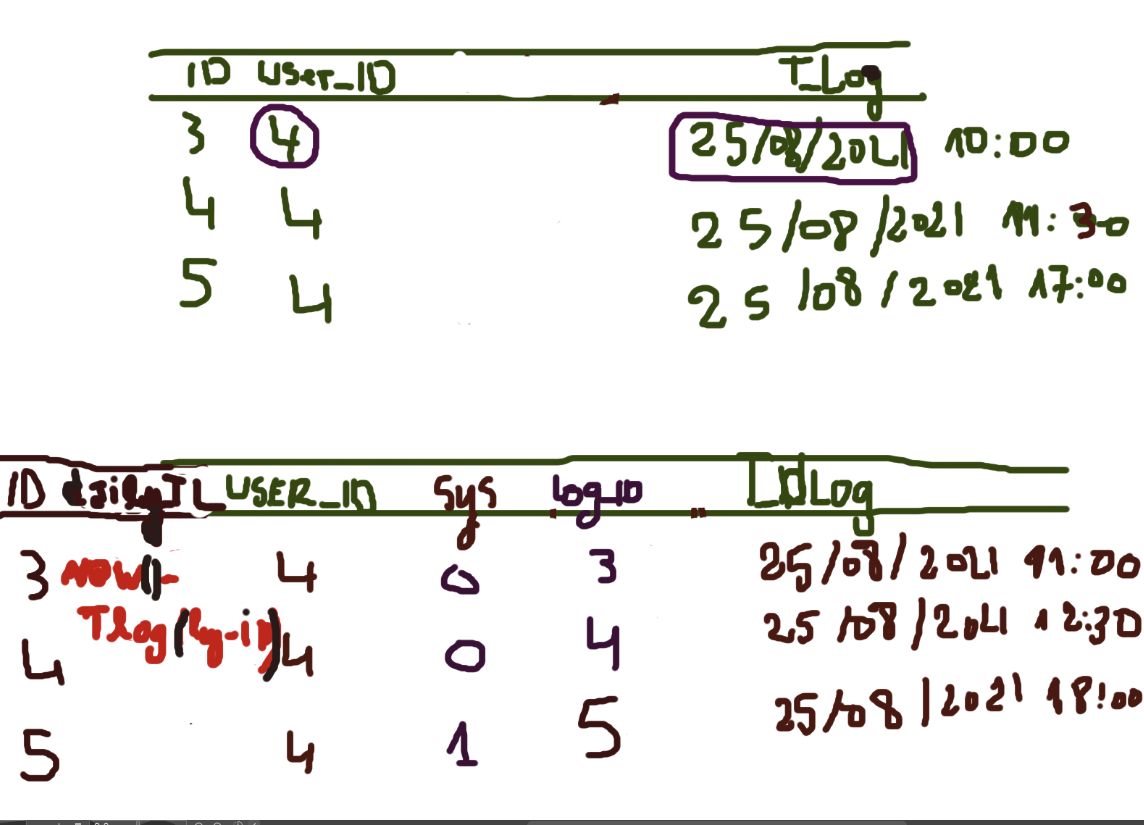 ID User_ID T_Log
3 4 25/08/2021 10:00
4 4 25/08/2021 11:30
5 4 25/08/2021 17:00
ID dailyTL USER_ID sys Log_ID LdLog
3 NOW()- 4 0 3 25/08/2021 11:00
Tlog(
4 4 0 4 25/08/2021 12:30
5 4 1 5 25/08/2021 18:00